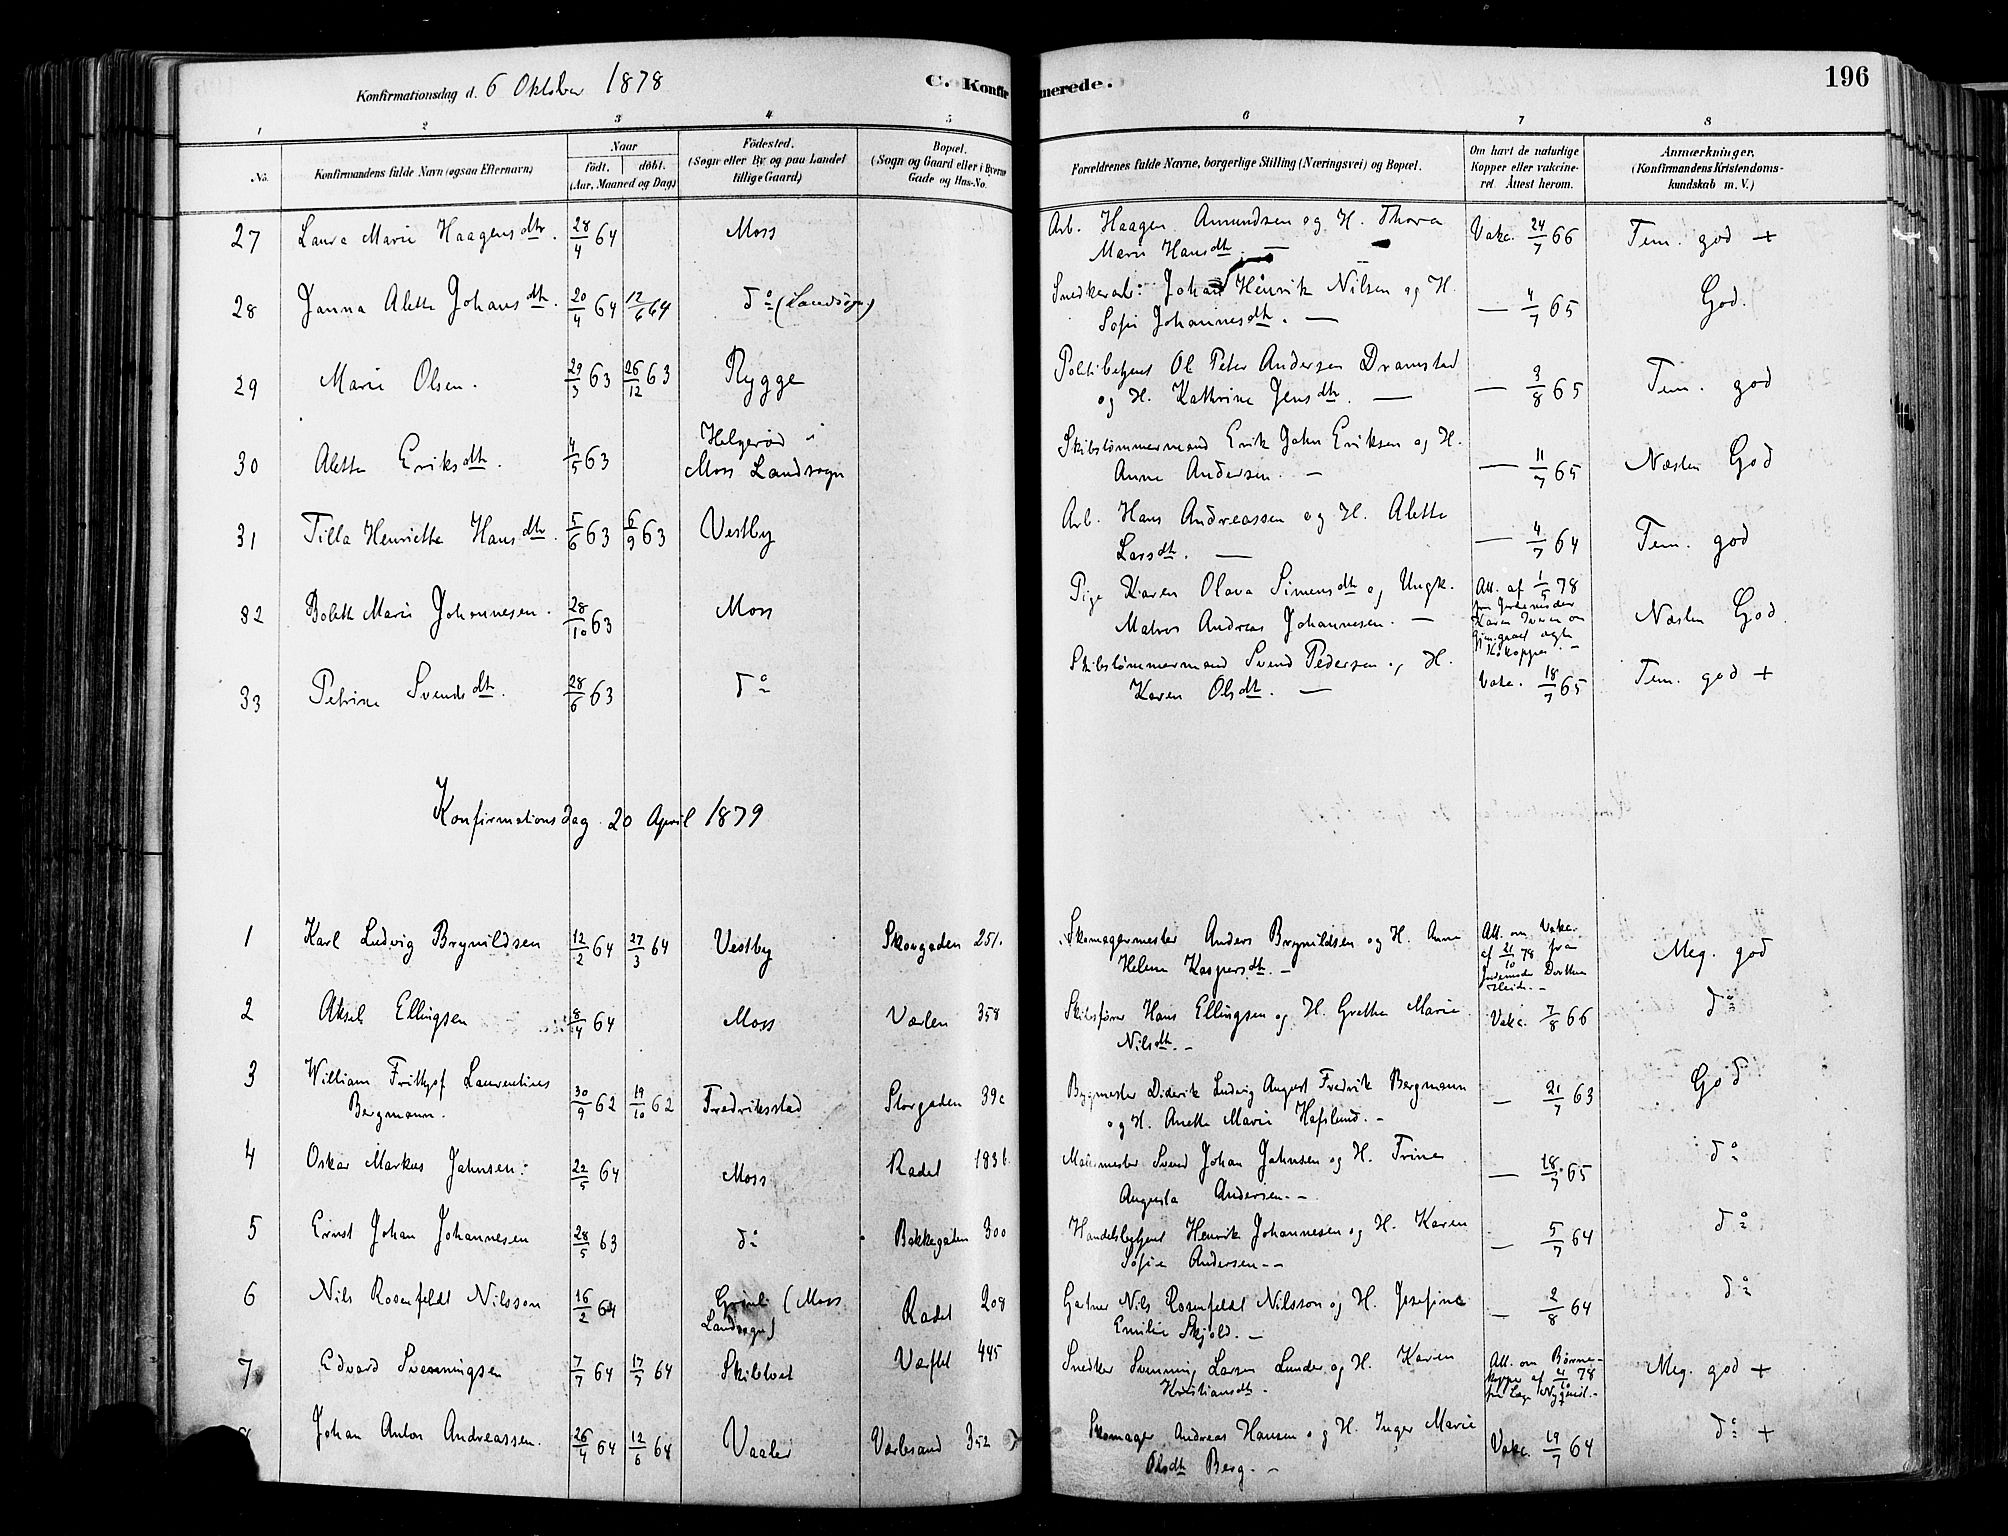 Konfirmationsdag d. 6 Oktober 1878
C. Konfirmerede.
196
1 2 3 4 5 6 7 8
No.
Konfirmandens fulde Navn (ogsaa Efternavn)
Naar
født. døbt.
(Aar, Maaned og Dag)
Fødested.
(Sogn eller By og paa Landet
tillige Gaard)
Bopæl.
(Sogn og Gaard eller i Byerne
Gade og Hus-No.
Forældrenes fulde Navne, borgerlige Stilling (Næringsvei) og Bopæl.
Om havt de naturlige
Kopper eller vakcine-
ret. Attest herom.
Anmærkninger.
(Konfirmandens Kristendoms-
kundskab m. V.)
27 Laura Marie Haagensdtr. 28/4 64 Moss Arb. Haagen Amundsen og H. Thora Vakc. 24/7 66 Tem. god +
Marie Hansdtr. —
28 Janna Alette Johansdtr. 20/4 64 12/6 64 do (Landsogn) Snedkerarb: Johan Henrik Nilsen og H. — 4/7 65 God.
Sofie Johannesdtr. —
29 Marie Olsen. 29/3 63 26/12 63 Rygge Politibetjent Ol Peter Andersen Dramstad — 3/8 65 Tem. god
og H. Kathrine Jensdtr. —
30 Alette Eriksdtr. 4/5 63 Helgerød i
Moss Landsogn Skibstømmermand Erik John Eriksen og H. — 11/7 65 Næsten God
Anne Andersen. —
31 Tilla Henriette Hansdtr. 5/6 63 6/9 63 Vestby Arb. Hans Andreassen og H. Alette — 4/7 64 Tem. god
Larsdtr. —
32 Bolett Marie Johannesen. 28/10 63 Moss Pige Karen Olava Simensdtr og Ungk.
Matros Andreas Johannesen. — Att. af 1/5 78
fra Jordemoder
Karen Iversen om
gjengaaet ægte
Kokopper. — Næsten God.
33 Petrine Svendsdtr. 28/6 63 do Skibstømmermand Svend Pedersen og H. Vakc. 18/7 65 Tem. god +
Karen Olsdtr. —
Konfirmationsdag 20 April 1879
1 Karl Ludvig Brynildsen 12/2 64 27/3 64 Vestby Skougaden 251. Skomagermester Anders Brynildsen og H. Anne
Helene Kaspersdtr. — Att. om Vakc.
af 21/10 78 fra
Jordemoder Dorthea
Meg. god
2 Aksel Ellingsen 8/4 64 Moss Værlen 358 Skibsfører Hans Ellingsen og H. Grethe Marie Vakc. 7/8 66 do
Nilsdtr. —
3 William Frithjof Laurentius
Bergmann. 30/9 62 19/10 62 Fredriksstad Storgaden 39c Bygmester Diderik Ludvig August Fredrik Bergmann — 21/7 63 God
og H. Anette Marie Hafslund. —
4 Oskar Markus Jahnsen. 22/5 64 Moss Radet 183b. Malermester Svend Johan Jahnsen og H. Trine — 18/7 65 do
Augusta Andersen. —
5 Ernst Johan Johannesen 28/5 63 do Bakkegaden 300 Handelsbetjent Henrik Johannesen og H. Karen — 5/7 64 do
Sofie Andersen. —
6 Nils Rosenfeldt Nilsson 16/2 64 (Moss
Landsogn) Radet 208 Gartner Nils Rosenfeldt Nilsson og H. Josefine — 2/8 64 do
Emilie Skjold. —
7 Edvard Svenningsen 7/7 64 17/7 64 Skibtvet Værftet 445 Snedker Svenning Larsen Lunder og H. Karen
Kristiansdtr. — Att. om Børne-
kopper af 4/10 78
fra Læge — Meg. god +
8 Johan Anton Andreassen. 26/4 64 12/6 64 Vaaler Værlesand 352 Skomager Andreas Hansen og H. Inger Marie Vakc. 19/7 64 do +
Olsdtr Berg. —